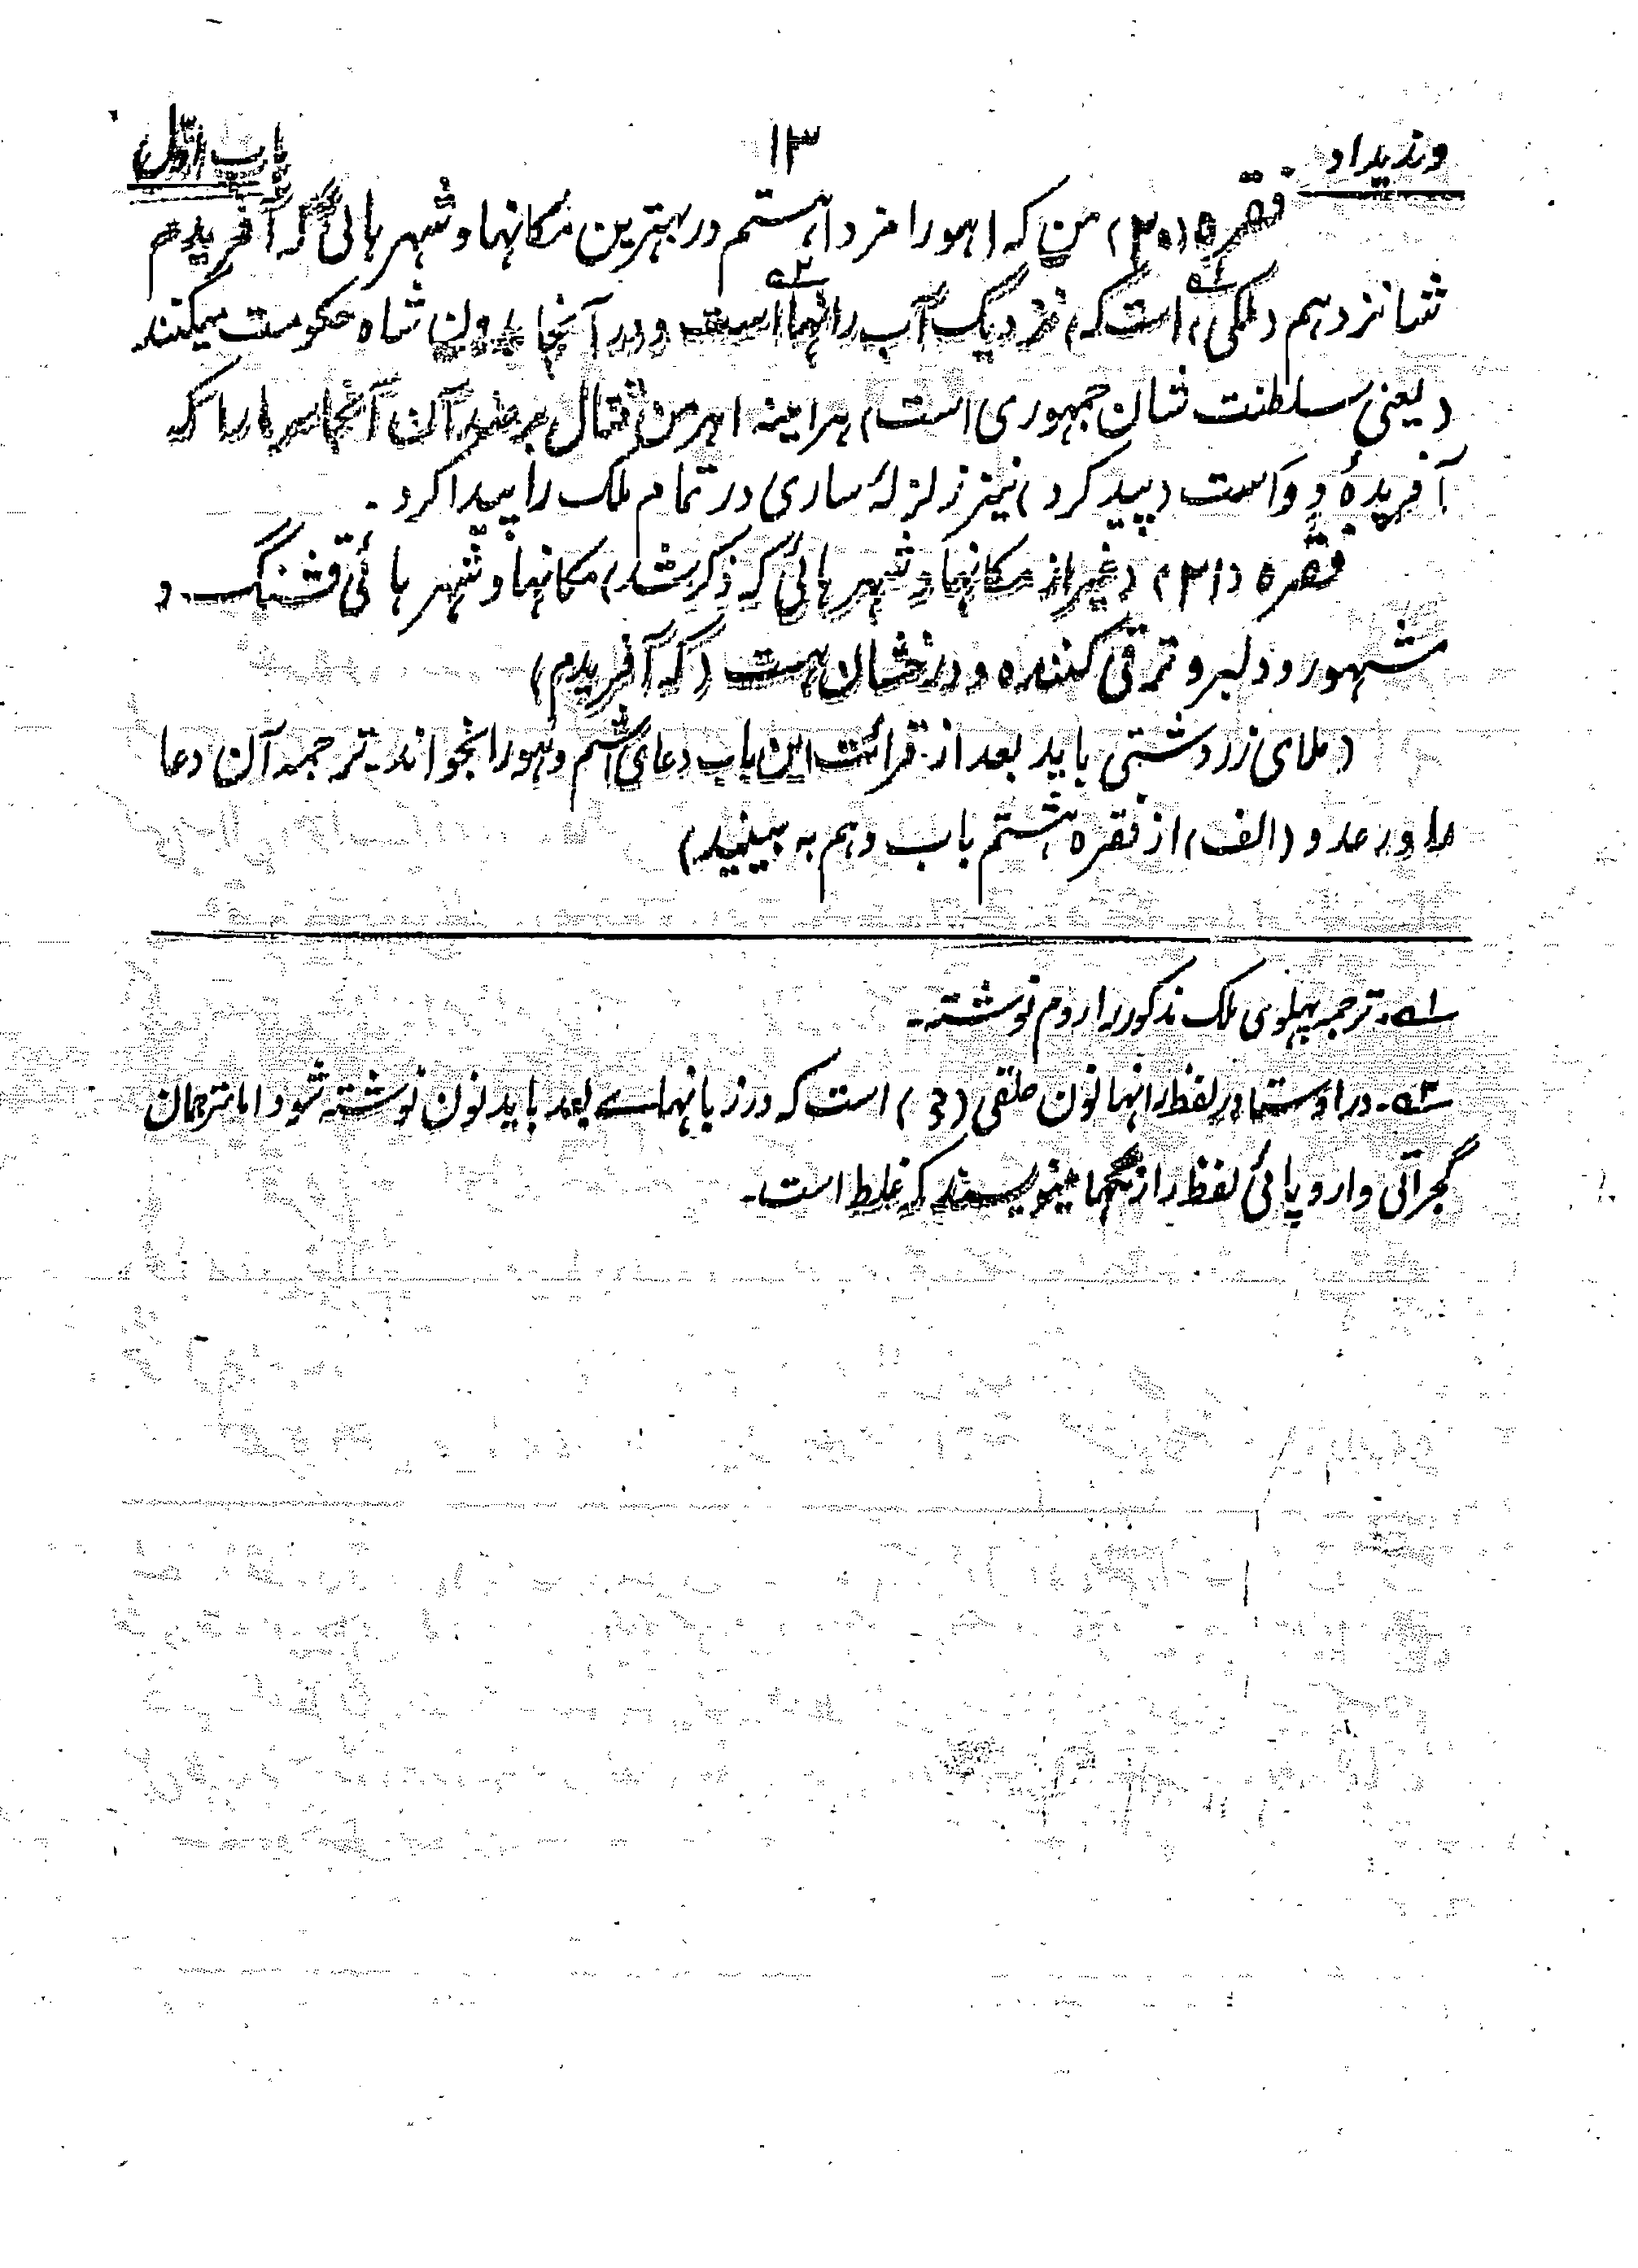 وندیداد ۱۳ باب اوّل
فقره (۲۰) من که اهورا مزدا هستم در بهترین مکانها و شهرهائی که آفریدم
شانزدهم (ملکی ۱ﻪ است که) نزدیک آب رانها ۲ﻪ است و در آنجا بدون شاه حکومت میکنند
(یعنی سلطنت شان جمهوری است) هراینه اهرمن قتال بر ضد آن آنجا سرما را که
آفریدهٔ دِوَ است (پید کرد) نیز زلزلهٔ ساری در تمام ملک را پیدا کرد.
فقره (۲۱) (غیر از مکانها و شهرهائی که ذکر شد) مکانها و شهرهائی قشنگ و
مشهور و دلبر و ترقی کننده و درخشان هست (که آفریدم)
(ملای زردشتی باید بعد از قرائت این باب دعای اشم وهو را بخواند. ترجمه آن دعا
را در عدد (الف) از فقره هشتم باب دهم به بینید)
۱ﻪ. ترجمه پهلوی ملک مذکور را روم نوشته.
۲ﻪ. در اوستا در لفظ رانها نون حلقی ( ) است که در زبانهای بعد باید نون نوشته شود اما مترجمان
گجراتی و اروپائی لفظ را رنگها مینویسند که غلط است.